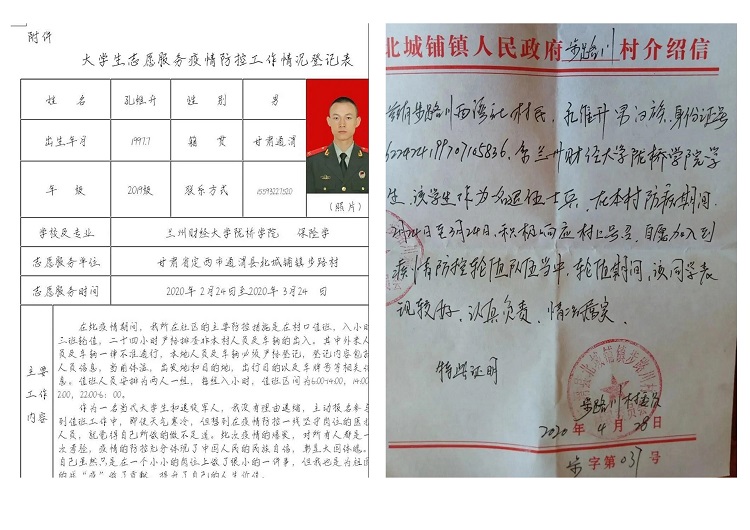 附件
大学生志愿服务疫情防控工作情况登记表
姓 名 孔维升 性 别 男
出生年月 1997.7 籍 贯 甘肃通渭
年 级 2019级 联系方式 15593227520
(照片)
学校及专业 兰州财经大学陇桥学院 保险学
志愿服务单位 甘肃省定西市通渭县北城铺镇步路村
志愿服务时间 2020年2月24日至2020年3月24日
主要工作内容
在此疫情期间，我所在社区的主要防控措施是在村口值班，入小
三班轮值，二十四小时严防排查非本村人员及车辆的出入。其中外来人
员及车辆一律不准通行，本地人员及车辆必须严格登记，登记内容包
人员信息，当前体温，出发地和目的地，出行目的以及车牌号等相关
息。值班人员安排为两人一组，每班八小时，值班区间为6:00-14:00, 14:00
作为一名当代大学生和退役军人，我没有理由退缩，主动报名参
到值班工作中，即使天气寒冷，但想到在疫情防控一线坚守岗位的医
人员，就觉得自己所做的微不足道。此次疫情的爆发，对所有人都是一
次考验，疫情的防控充分体现了中国人民的民族自信，彰显大国体魄。
自己虽然只是在一个小小的岗位上做了很小的一件事，但我也是为祖国
北城铺镇人民政府步路川村介绍信
兹有步路川西湾社村民，孔维升 男 汉族，身份证号
系兰州财经大学陇桥学院学
生，该学生作为一名退伍士兵，在本村防疫期间
2月24日至3月24日，积极响应村上号召，自愿加入到
疫情防控轮值队伍当中，轮值期间，该同学表
现较好，认真负责，情况属实
特此证明
步路川村委会
2020 年 4 月 28 日
步 字第 037 号